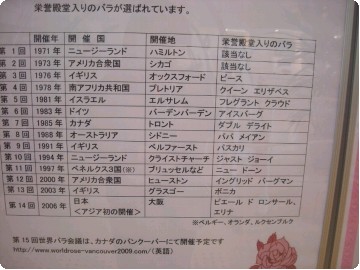 栄誉殿堂入りのバラが選ばれています。
開催年 開催国 開催地 栄誉殿堂入りのバラ
第1回 1971年 ニュージーランド ハミルトン 該当なし
第2回 1973年 アメリカ合衆国 シカゴ 該当なし
第3回 1976年 イギリス オックスフォード ピース
第4回 1978年 南アフリカ共和国 プレトリア クイーン エリザベス
第5回 1981年 イスラエル エルサレム フレグラント クラウド
第6回 1983年 ドイツ バーデンバーデン アイスバーグ
第7回 1985年 カナダ トロント ダブル デライト
第8回 1988年 オーストラリア シドニー パパ メイアン
第9回 1991年 イギリス ベルファースト パスカリ
第10回 1994年 ニュージーランド クライストチャーチ ジャスト ジョーイ
第11回 1997年 ベネルクス3国(※) ブリュッセルなど ニュー ドーン
第12回 2000年 アメリカ合衆国 ヒューストン イングリッド バーグマン
第13回 2003年 イギリス グラスゴー ボニカ
第14回 2006年 日本 大阪 ピエール ド ロンサール、
<アジア初の開催> エリナ
※ベルギー、オランダ、ルクセンブルク
第15回世界バラ会議は、カナダのバンクーバーにて開催予定です
http://www.worldrose-vancouver2009.com/(英語)